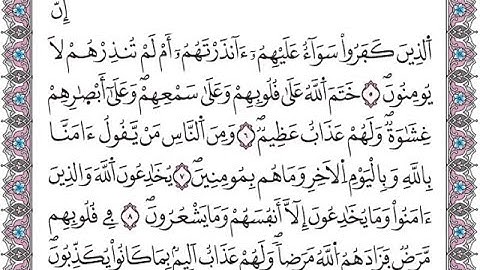 إِنَّ
اَ۬لذِينَ كَفَرُواْ سَوَآءٌ عَلَيْهِمُۥٓ ءَآنذَرْتَهُمُۥٓ أَمْ لَمْ تُنذِرْهُمْ لَا
يُومِنُونَۖ ۝٥ خَتَمَ اَ۬للَّهُ عَلَىٰ قُلُوبِهِمْ وَعَلَىٰ سَمْعِهِمْۖ وَعَلَىٰٓ أَبْصٰ۪رِهِمْ
غِشَٰوَةٞۖ وَلَهُمْ عَذَابٌ عَظِيمٞۖ ۝٦ وَمِنَ اَ۬لنَّاسِ مَنْ يَّقُولُ ءَامَنَّا
بِاللَّهِ وَبِالْيَوْمِ اِ۬لَاخِرِ وَمَا هُم بِمُومِنِينَۖ ۝٧ يُخَٰدِعُونَ اَ۬للَّهَ وَالذِينَ
ءَامَنُواْ وَمَا يُخَٰدِعُونَ إِلَّآ أَنفُسَهُمْ وَمَا يَشْعُرُونَۖ ۝٨ فِے قُلُوبِهِم
مَّرَضٞ فَزَادَهُمُ اُ۬للَّهُ مَرَضاٗۖ وَلَهُمْ عَذَابٌ اَلِيمُۢ بِمَا كَانُواْ يُكَذِّبُونَۖ